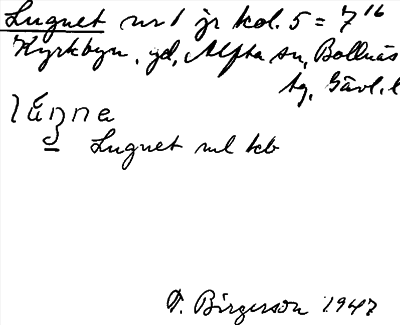 Lugnet nr 1 jr kol. 5 = 7¹⁶
Kyrkbyn, gd, Alfta sn, Bollnäs
tg, Gävl. l
Lugnet ml kb
F. Birgerson 1947